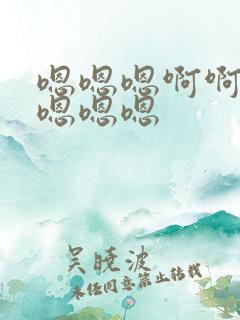 嗯嗯嗯啊啊
嗯嗯嗯
吴晓波
未经同意禁止转载